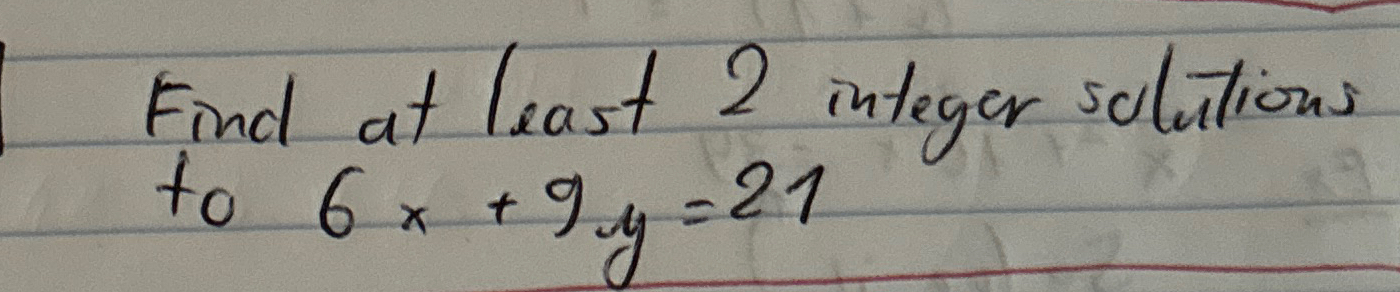 Find at least 2 integer solutions
to 6x + 9y = 21